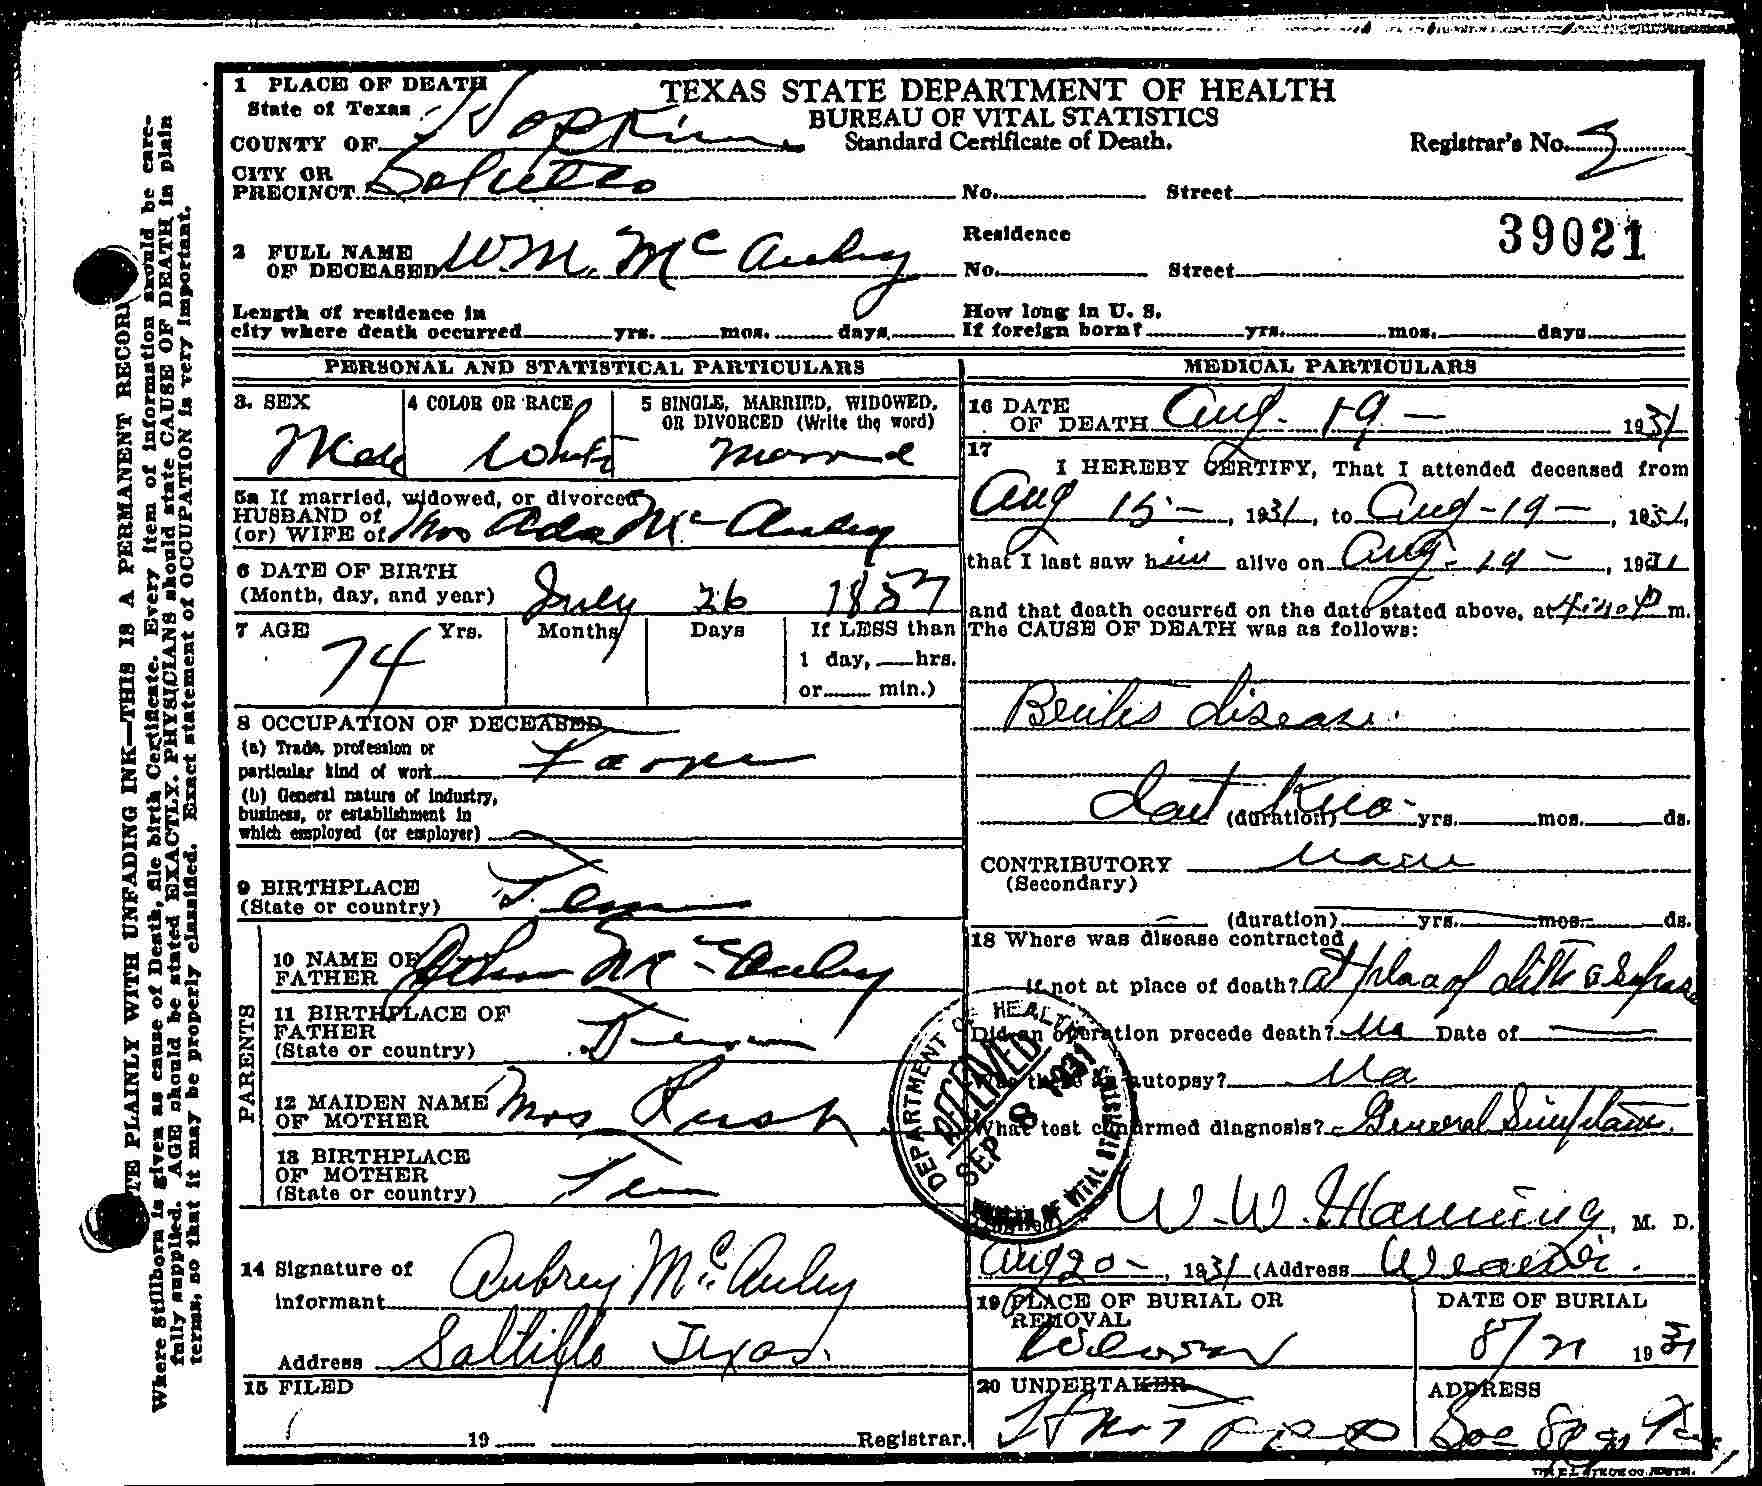 TEXAS STATE DEPARTMENT OF HEALTH
BUREAU OF VITAL STATISTICS
Standard Certificate of Death.
Registrar's No. 2
39021
1 PLACE OF DEATH
State of Texas
COUNTY OF Hopkins
CITY OR
PRECINCT
No. Street
2 FULL NAME
OF DECEASED W.M. McAuley
Residence
No. Street
Length of residence in
city where death occurred yrs. mos. days.
How long in U. S.
If foreign born? yrs. mos. days
PERSONAL AND STATISTICAL PARTICULARS
3. SEX
Male
4 COLOR OR RACE
White
5 SINGLE, MARRIED, WIDOWED,
OR DIVORCED (Write the word)
5a If married, widowed, or divorced
HUSBAND of
(or) WIFE of Mrs Ada McAuley
6 DATE OF BIRTH
(Month, day, and year) July 26 1857
7 AGE Yrs. Months Days If LESS than
74
1 day, hrs.
or min.)
8 OCCUPATION OF DECEASED
(a) Trade, profession or
particular kind of work Farmer
(b) General nature of industry,
business, or establishment in
which employed (or employer)
9 BIRTHPLACE
(State or country) Tenn
PARENTS
10 NAME OF
FATHER McAuley
11 BIRTHPLACE OF
FATHER
(State or country) Tenn
12 MAIDEN NAME
OF MOTHER Mrs Rush
13 BIRTHPLACE
OF MOTHER
(State or country) Tenn
14 Signature of
informant Aubrey McAuley
Address Saltillo Texas.
15 FILED
19 Registrar.
MEDICAL PARTICULARS
16 DATE
OF DEATH Aug. 19 - 1931
17
I HEREBY CERTIFY, That I attended deceased from
Aug 15 -, 1931, to Aug - 19 -, 1931,
that I last saw him alive on Aug. 19 -, 1931
and that death occurred on the date stated above, at m.
The CAUSE OF DEATH was as follows:
Brites disease.
Dont Kno-
(duration) yrs. mos. ds.
CONTRIBUTORY None
(Secondary)
(duration) yrs. mos. ds.
18 Where was disease contracted
if not at place of death? At place of
Did an operation precede death? No Date of
Was there an autopsy? No
What test confirmed diagnosis? General
W. W. Hanning, M. D.
Aug 20 -, 1931 (Address
19 PLACE OF BURIAL OR
REMOVAL
DATE OF BURIAL
8/21 1931
20 UNDERTAKER
ADDRESS
DEPARTMENT OF HEALTH
RECEIVED
SEP 8 1931
BUREAU OF VITAL STATISTICS
WRITE PLAINLY WITH UNFADING INK—THIS IS A PERMANENT RECORD
Where Stillborn is given as cause of Death, file birth Certificate. Every item of information should be care-
fully supplied. AGE should be stated EXACTLY. PHYSICIANS should state CAUSE OF DEATH in plain
terms, so that it may be properly classified. Exact statement of OCCUPATION is very important.